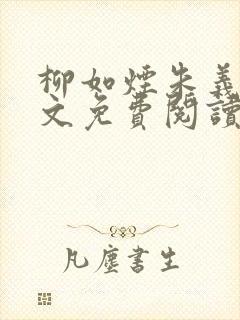 柳如煙朱義
文免費閱讀
凡塵書生